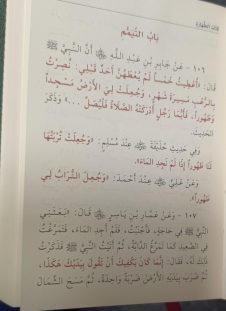 كتاب الطهارة
باب التيمم
١٠٦ - عَنْ جَابِرِ بْنِ عَبْدِ اللَّهِ ﷺ أَنَّ النَّبِيَّ ﷺ
قَالَ: «أُعْطِيتُ خَمْساً لَمْ يُعْطَهُنَّ أَحَدٌ قَبْلِي: نُصِرْتُ
بِالرُّعْبِ مَسِيرَةَ شَهْرٍ، وَجُعِلَتْ لِيَ الأَرْضُ مَسْجِداً
وَطَهُوراً، فَأَيُّمَا رَجُلٍ أَدْرَكَتْهُ الصَّلَاةُ فَلْيُصَلِّ ...» وَذَكَرَ
الْحَدِيثَ.
وَفِي حَدِيثِ حُذَيْفَةَ ﷺ عِنْدَ مُسْلِمٍ: «وَجُعِلَتْ تُرْبَتُهَا
لَنَا طَهُوراً إِذَا لَمْ نَجِدِ المَاءَ».
وَعَنْ عَلِيٍّ ﷺ عِنْدَ أَحْمَدَ: «وَجُعِلَ التُّرَابُ لِي
طَهُوراً».
١٠٧ - وَعَنْ عَمَّارِ بْنِ يَاسِرٍ ﷺ قَالَ: «بَعَثَنِي
النَّبِيُّ ﷺ فِي حَاجَةٍ، فَأَجْنَبْتُ، فَلَمْ أَجِدِ المَاءَ، فَتَمَرَّغْتُ
فِي الصَّعِيدِ كَمَا تَمَرَّغُ الدَّابَّةُ، ثُمَّ أَتَيْتُ النَّبِيَّ ﷺ فَذَكَرْتُ
ذَلِكَ لَهُ، فَقَالَ: إِنَّمَا كَانَ يَكْفِيكَ أَنْ تَقُولَ بِيَدَيْكَ هَكَذَا،
ثُمَّ ضَرَبَ بِيَدَيْهِ الأَرْضَ ضَرْبَةً وَاحِدَةً، ثُمَّ مَسَحَ الشِّمَالَ